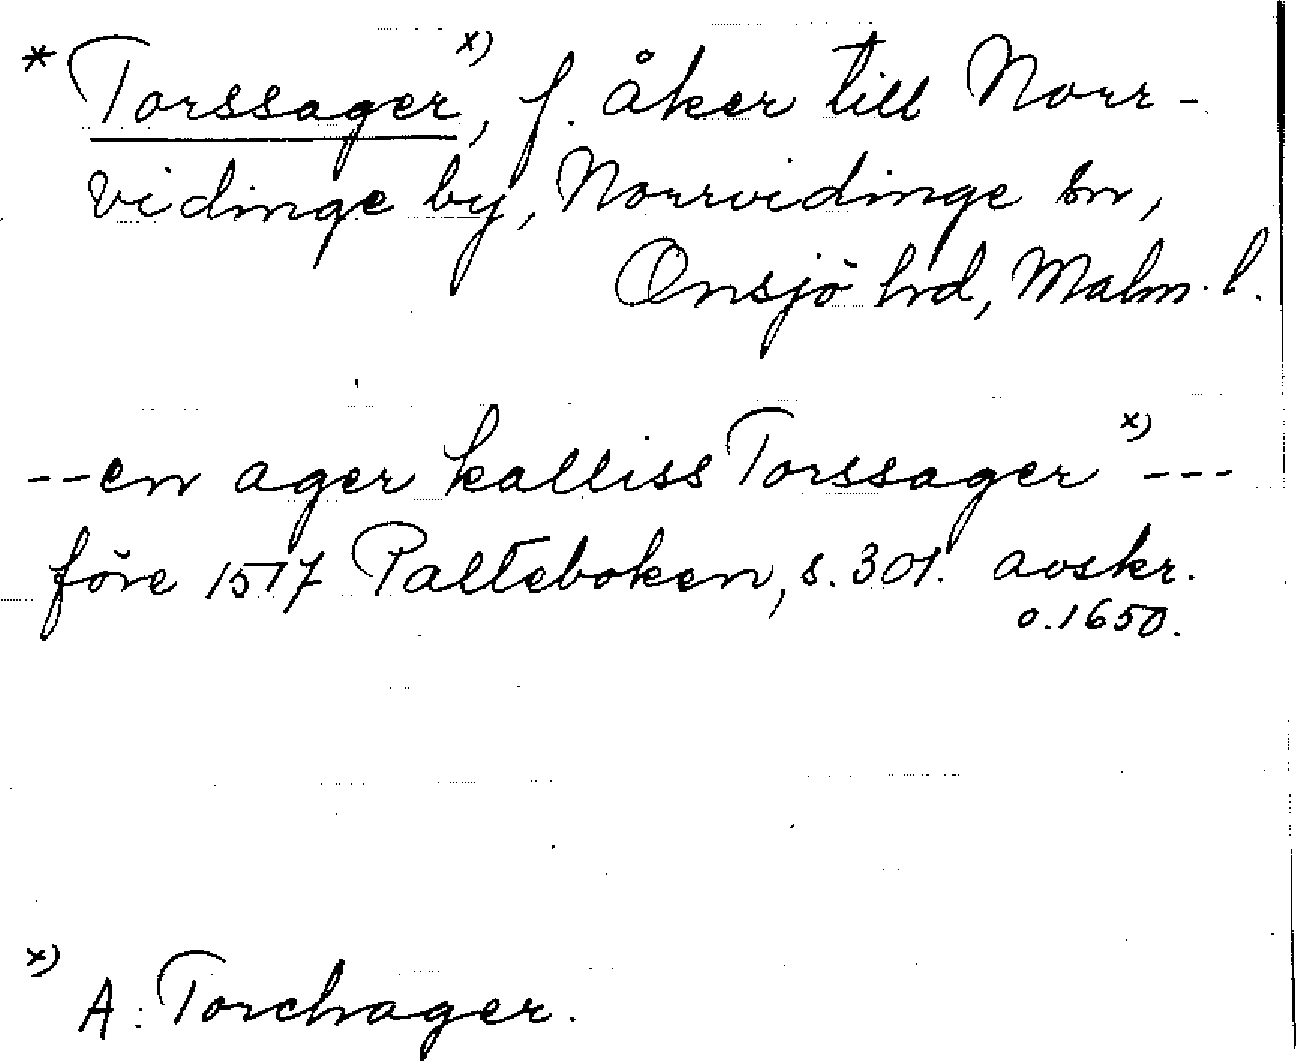 * Torssager x), f. åker till Norr-
vidinge by, Norrvidinge sn,
Onsjö hrd, Malm. l.
--en ager kalliss Torssager x) ---
före 1517 Palteboken, s. 301. avskr.
o. 1650.
x) A: Torchager.